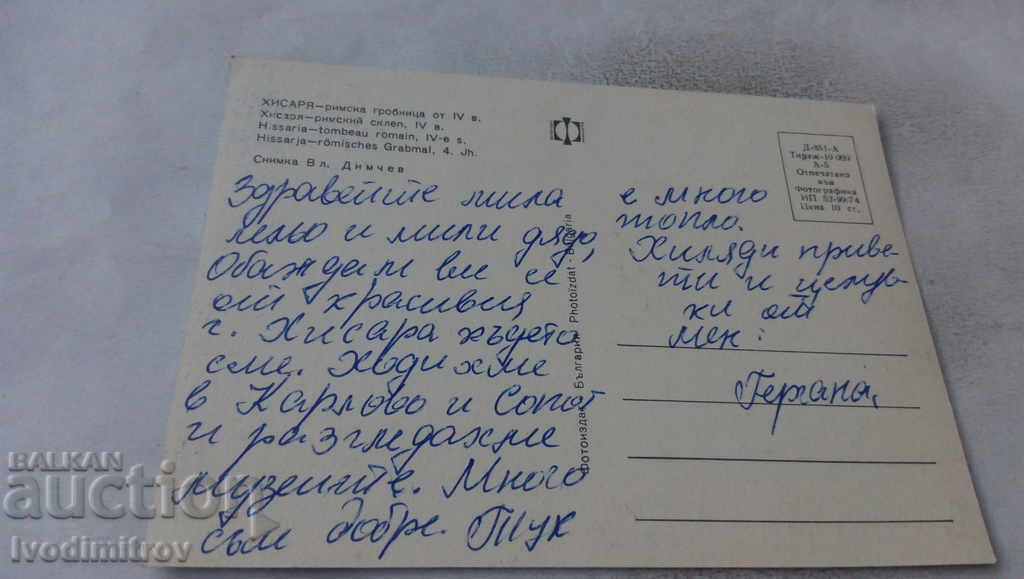 ХИСАРЯ—римска гробница от IV в.
Хисаря—римский склеп, IV в.
Hissaria—tombeau romain, IV-e s.
Hissarja—römisches Grabmal, 4. Jh.
Снимка Вл. Димчев
Д-851-А
Тираж-10 000
А-5
Отпечатано
във
Фотографика
ИП 53-99/74
Цена 10 ст.
Фотоиздат - България Photoizdat - Bulgaria
Здравейте мила
лельо и мили дядо,
Обаждам ви се
от красивия
г. Хисара където
сме. Ходихме
в Карлово и Сопот
и разгледахме
музеите. Много
съм добре. Тук
е много
топло.
Хиляди приве-
ти и целув-
ки от
мен:
Гергана
BALKAN
auction
Ivodimitrov